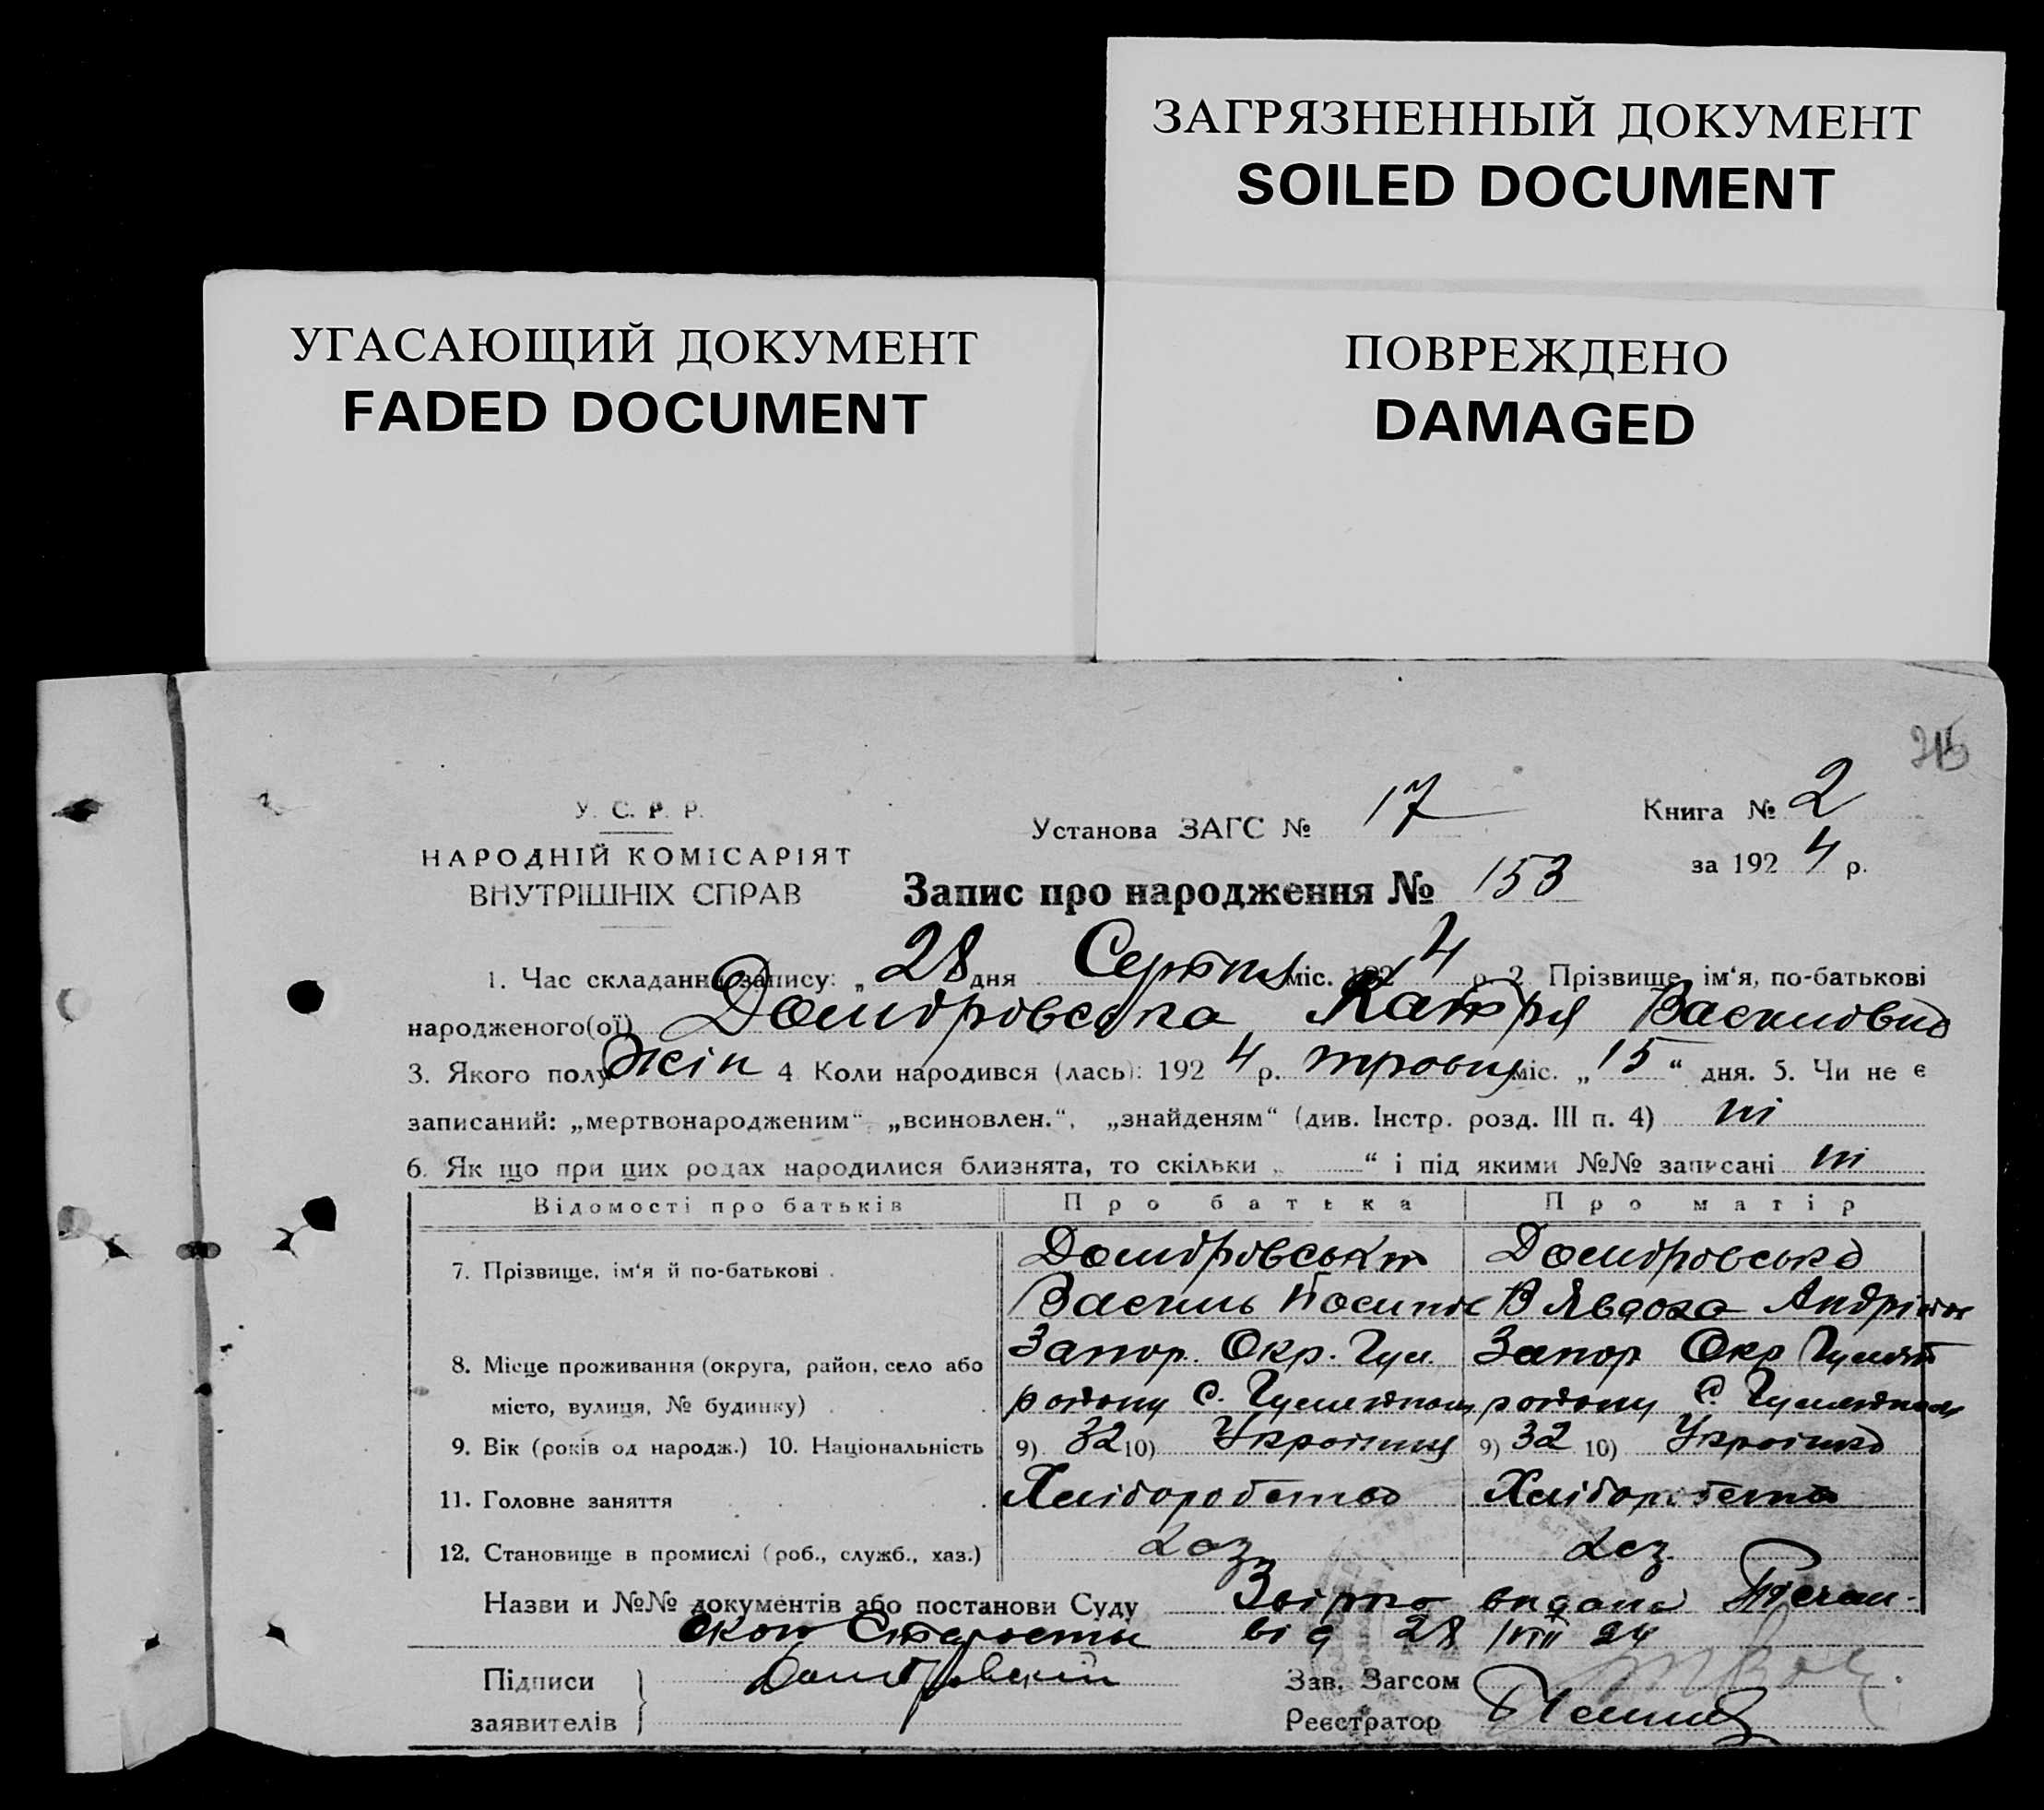 ЗАГРЯЗНЕННЫЙ ДОКУМЕНТ
SOILED DOCUMENT
УГАСАЮЩИЙ ДОКУМЕНТ
FADED DOCUMENT
ПОВРЕЖДЕНО
DAMAGED
У. С. Р. Р.
НАРОДНІЙ КОМІСАРІЯТ
ВНУТРІШНІХ СПРАВ
Установа ЗАГС № 17
Книга № 2
за 1924 р.
Запис про народження № 153
1. Час складання запису: „28 дня Серпня міс. 1924 р. 2. Прізвище, ім‘я, по-батькові
народженого(ої) Домбровська Катря Василовна
3. Якого полу жін 4 Коли народився (лась): 1924 р. травня міс. „15“ дня. 5. Чи не є
записаний: „мертвонародженим“, „всиновлен.“, „знайденям“ (див. Інстр. розд. III п. 4) ні
6. Як що при цих родах народилися близнята, то скільки „ “ і під якими №№ записані ні
Відомості про батьків Про батька Про матір
7. Прізвище, ім‘я й по-батькові Домбровський Домбровська
Василь Явдоха
8. Місце проживання (округа, район, село або Запор. Окр. Гул. Запор Окр
місто, вулиця, № будинку) району с. району с.
9. Вік (років од народж.) 10. Національність 9) 32 10) Українец 9) 32 10) Українка
11. Головне заняття Хліборобство Хліборобство
12. Становище в промислі (роб., служб., хаз.) хаз хаз.
Назви и №№ документів або постанови Суду видана
від 28/VIII 24
Підписи Домбровский Зав. Загсом
заявителів Реєстратор